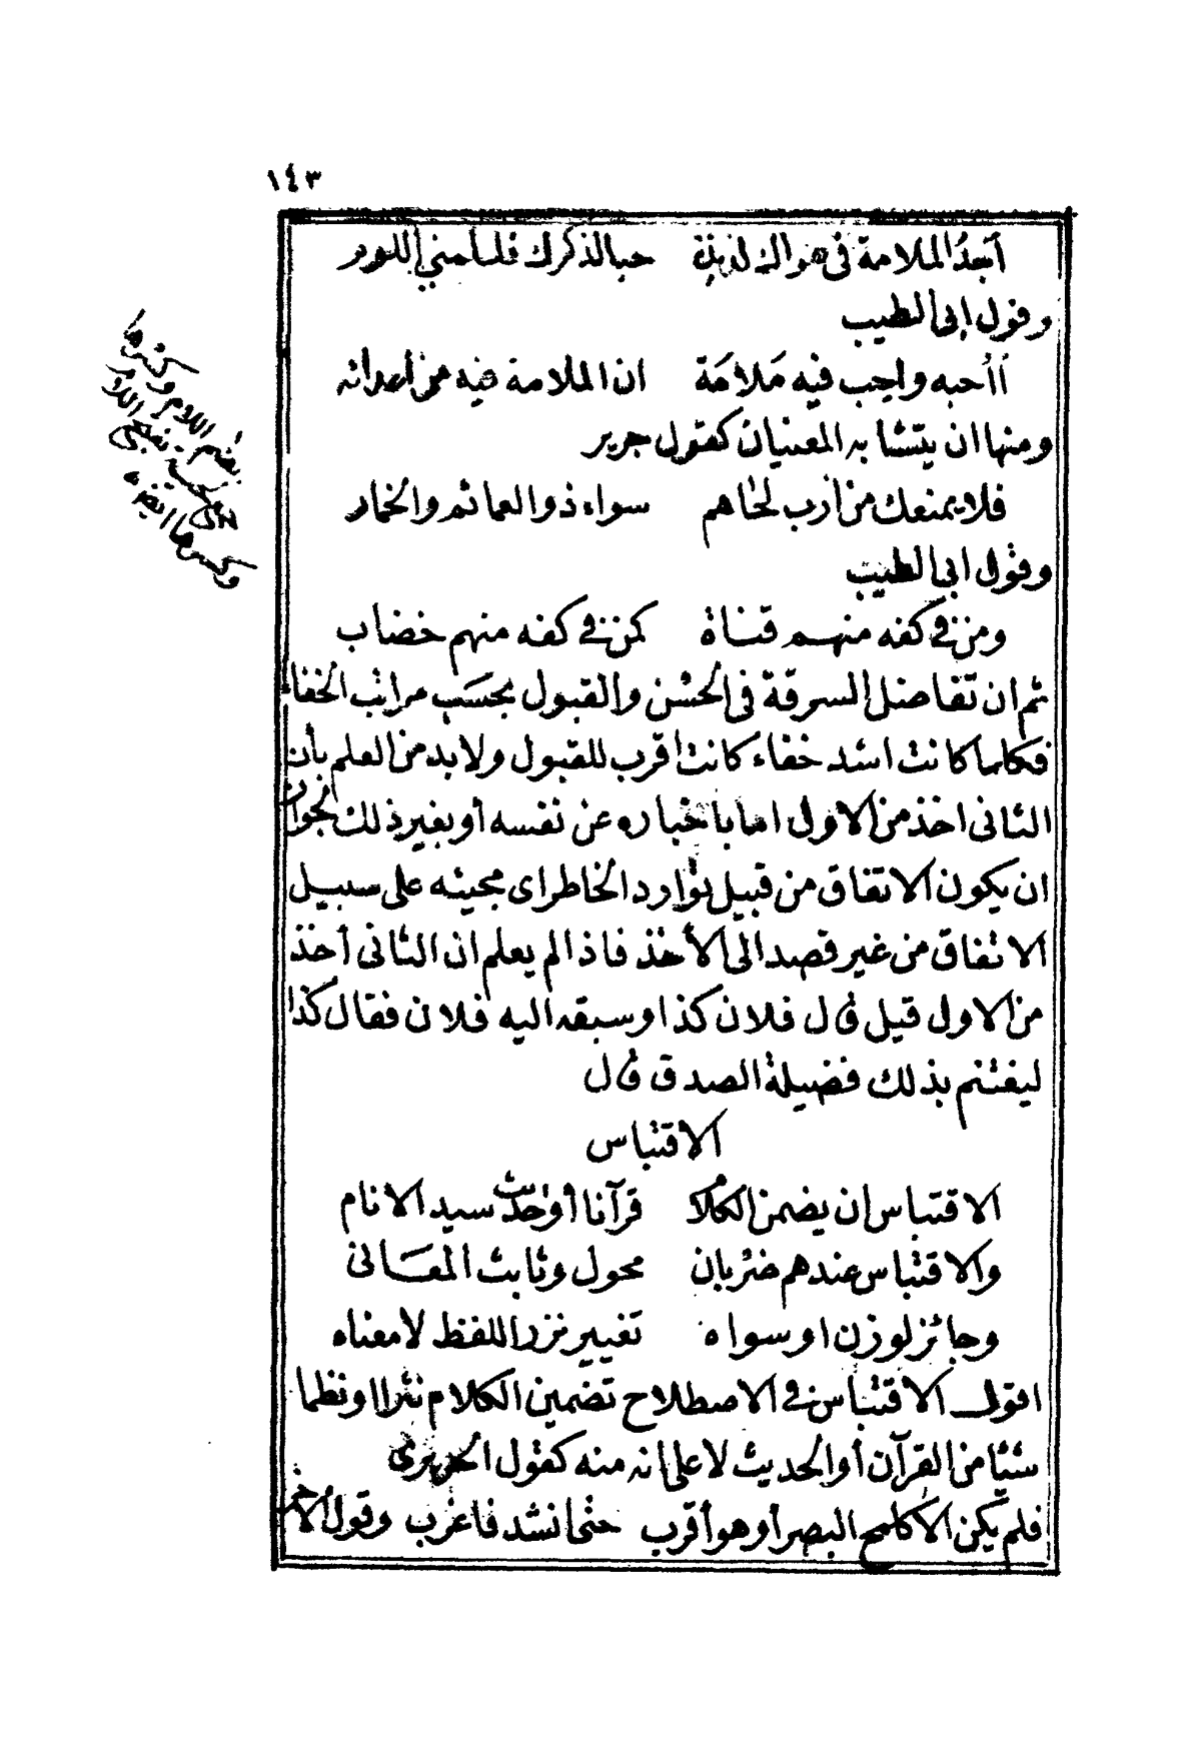 ١٤٣
أجد الملامة فى هواك لذيذة حبا لذكرك فليلمنى اللوم
وقول ابى الطيب
أأحبه واحب فيه مَلامَة ان الملامة فيه من أعدائه
ومنها ان يتشابه المعنيان كقول جرير
فلا يمنعك من أرب لحاهم سواء ذو العمائم والخمار
وقول ابى الطيب
ومن فى كفه منهم قناة كمن فى كفه منهم خضاب
ثم ان تفاضل السرقة فى الحسن والقبول بحسَب مراتب الخفاء
فكلما كانت اشد خفاء كانت اقرب للقبول ولا بد من العلم بأن
الثانى اخذ من الاول اما باخباره عن نفسه أو بغير ذلك لجواز
ان يكون الاتفاق من قبيل توارد الخاطر اى مجيئه على سبيل
الاتفاق من غير قصد الى الأخذ فاذا لم يعلم ان الثانى أخذ
من الاول قيل قال فلان كذا وسبقه اليه فلان فقال كذا
ليغتنم بذلك فضيلة الصدق قال
الاقتباس
الاقتباس ان يضمن الكلام قرآنا أو حديث سيد الانام
والاقتباس عندهم ضربان محول وثابت المعَانى
وجائز لوزن او سواه تغيير نزر اللفظ لا معناه
اقول الاقتباس فى الاصطلاح تضمين الكلام نثرا او نظما
شيئا من القرآن أو الحديث لا على انه منه كقول الحريرى
فلم يكن الا كلمح البصر أو هو أقرب حتى انشد فاغرب وقول الآخر
بضم اللام وكسرها
جمع لحية بفتح اللام
وكسرها ايضا